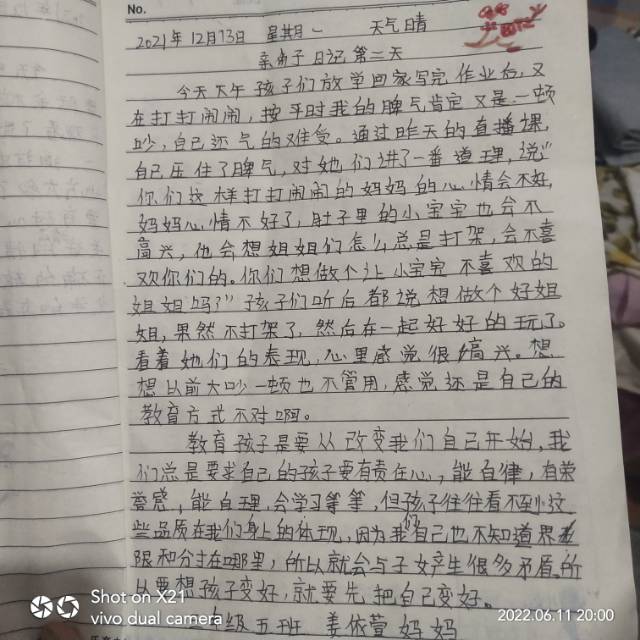 No.
2021年12月13日 星期一 天气晴
亲子日记第二天
今天下午孩子们放学回家写完作业后,又
在打打闹闹,按平时我的脾气肯定又是一顿
吵,自己还气的难受。通过昨天的直播课,
自己压住了脾气,对她们讲了一番道理,说"
你们这样打打闹闹的妈妈的心情会不好,
妈妈心情不好了,肚子里的小宝宝也会不
高兴,他会想姐姐们怎么总是打架,会不喜
欢你们的。你们想做个让小宝宝不喜欢的
姐姐吗?"孩子们听后都说想做个好姐
姐,果然不打架了,然后在一起好好的玩了。
看着她们的表现,心里感觉很高兴。想
想以前大吵一顿也不管用,感觉还是自己的
教育方式不对啊。
教育孩子是要从改变我们自己开始,我
们总是要求自己的孩子要有责任心,能自律,有荣
誉感,能自理,会学习等等,但孩子往往看不到这
些品质在我们身上的体现,因为我们自己也不知道界
限和分寸在哪里,所以就会与子女产生很多矛盾.所
以要想孩子变好,就要先把自己变好。
年级五班 姜依萱妈妈
Shot on X21
vivo dual camera
2022.06.11 20:00